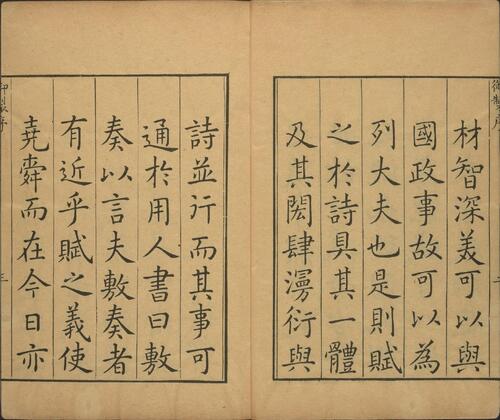 御製序
二
材智深美可以與
國政事故可以為
列大夫也是則賦
之於詩具其一體
及其閎肆漫衍與
詩並行而其事可
通於用人書曰敷
奏以言夫敷奏者
有近乎賦之義使
堯舜而在今日亦
御製序
三